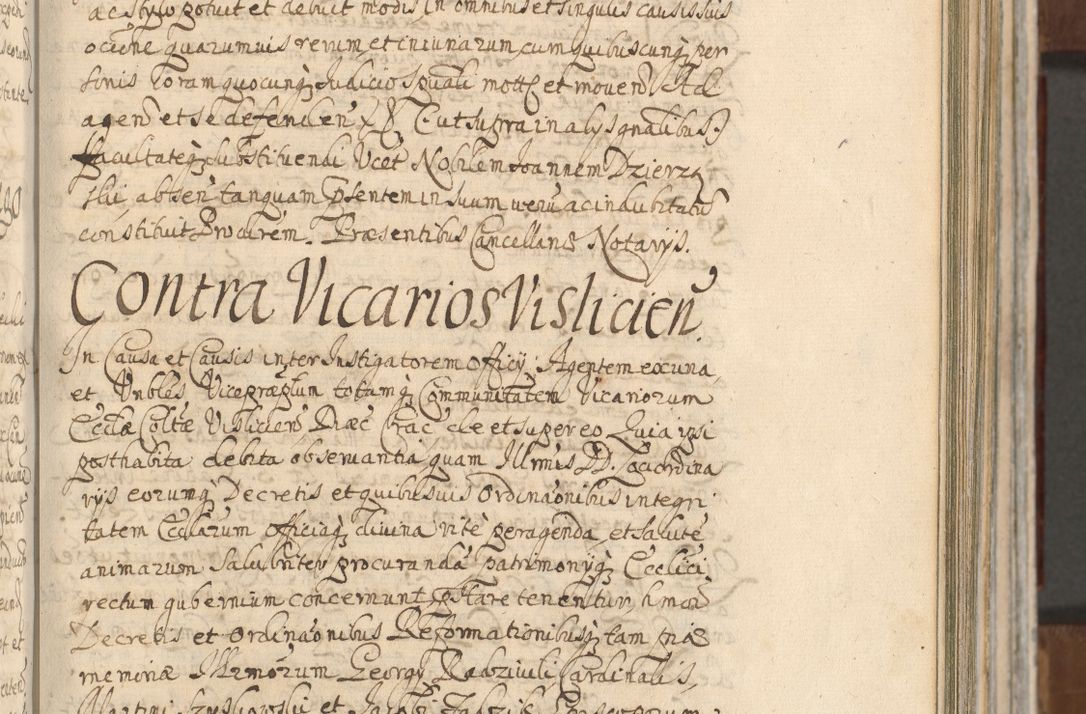 ac stylo potuit et debuit modis in omnibus et singulis causis suis
ocione quarumvis rerum et iniuriarum cum quibuscunq, per
sonis coram quocunq, Judicio Spuali mott et movend
agend et se defenden ut supra in alys gnalibus.
Facultateq, substituendi Ucet Nobilem Joannem Dzierz
ski absen tanquam psentem in suum verum ac indubitatu
constituit Procurem. Præsentibus Cancellariæ Notarys.
Contra Vicarios Vislicien.
In Causa et Causis inter Instigatorem Officy Agentem ex una,
et Vnbles Vicepræptum totamq, Communitatem Vicariorum
Ecclæ Colltæ Visliciens Diæc Crac de et super eo Quia ipsi
posthabita debita observantia quam Illrmis DD. Loci Ordina
rys eorumq, Decretis et quibusvis Ordinaonibus integri
tatem Ecclarum officiaq, divina rite peragenda et salute
animarum salubriter procuranda patrimonyq, Ecclici
rectum gubernium concernunt pstare tenentur,
Decretis et Ordinaonibus Reformationibusq, tam piæ
memoriæ Illrmorum Georgy Radziwili Cardinalis,
Martini Szyszkowski et Jacobi Zadzik Episcoporum